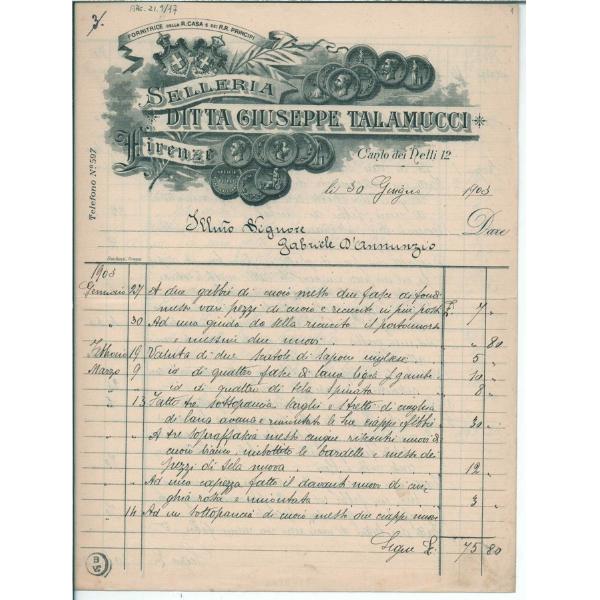 3.
ARC. 21. 9/17
1
FORNITRICE DELLA R. CASA E DEI R.R. PRINCIPI
SELLERIA
DITTA GIUSEPPE TALAMUCCI
Firenze
Canto dei Nelli 12
Telefono No. 597
li 30 Giugno 1903
Illmo Signore Dare
Gabriele D'Annunzio
1903
Gennaio 27 A due gabbie di cuoio messo due fasce di fondi
messo vari pezzi di cuoio e ricucito in più posti £ 7 "
" 30 Ad una guida da sella ricucito il portamorso
e messivi due nuovi " 80
Febbraio 19 Valuta di due scatole di sapone inglese 5 "
Marzo 9 di quattro fasce di lana per gambe 10 "
di quattro di tela spinata 8 "
" 13 Fatto tre sottopancia larghi e stretti di cinghia
di lana avana e rimontate le sue ciappe e fibbie 30 "
" A tre soprafascia messo cinque riscontri nuovi di
cuoio bianco imbottito le bardelle e messo dei
pezzi di tela nuova 12 "
" Ad una capezza fatto il davanti nuovo di cin-
ghia rossa e rimontata 3 "
" 14 Ad un sottopancia di cuoio messo due ciappe nuove
Segue £ 75 80